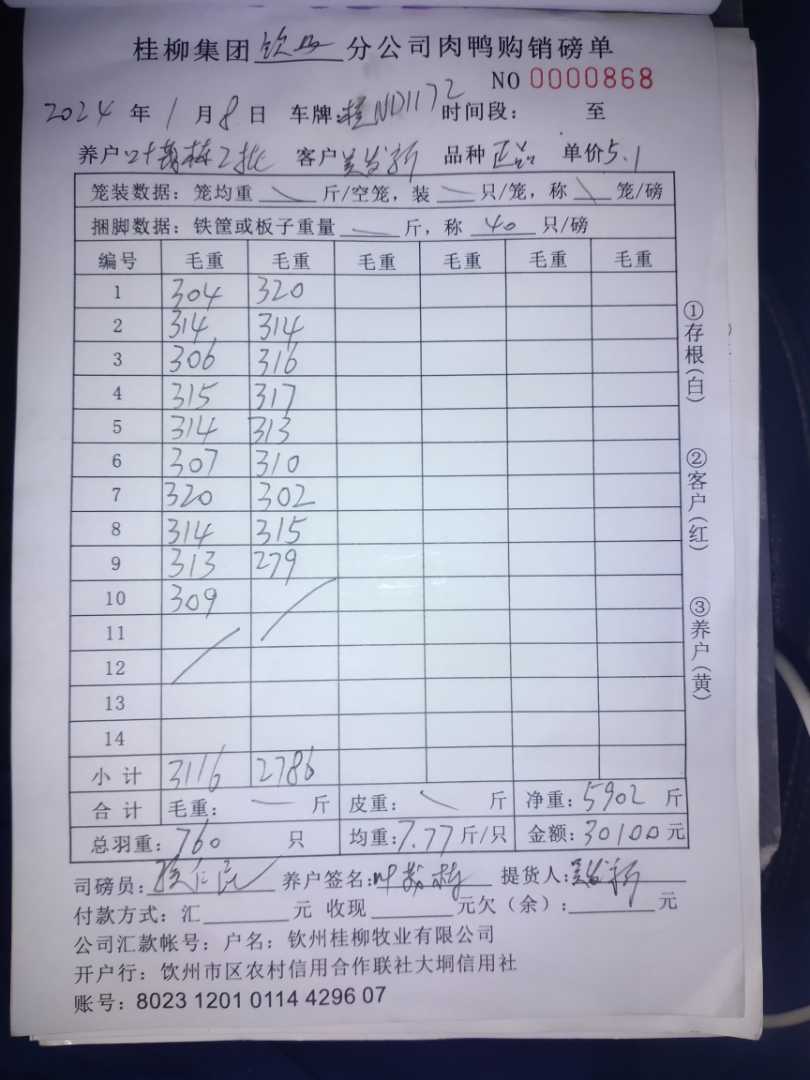 桂柳集团 钦州 分公司肉鸭购销磅单
NO 0000868
2024 年 1 月 8 日 车牌:桂ND1172 时间段: 至
养户 叶 栋2批 客户 新 品种 正品 单价 5.1
笼装数据: 笼均重 斤/空笼, 装 只/笼, 称 笼/磅
捆脚数据: 铁筐或板子重量 斤, 称 40 只/磅
编号 毛重 毛重 毛重 毛重 毛重 毛重
1 304 320
2 314 314
3 306 316
4 315 317
5 314 313
6 307 310
7 320 302
8 314 315
9 313 279
10 309
11
12
13
14
小计 3116 2786
合计 毛重: 斤 皮重: 斤 净重: 5902 斤
总羽重: 760 只 均重: 7.77 斤/只 金额: 30100 元
司磅员: 养户签名: 叶 栋 提货人: 新
付款方式: 汇 元 收现 元欠(余): 元
公司汇款帐号: 户名: 钦州桂柳牧业有限公司
开户行: 钦州市区农村信用合作联社大垌信用社
账号: 8023 1201 0114 4296 07
①存根(白)
②客户(红)
③养户(黄)